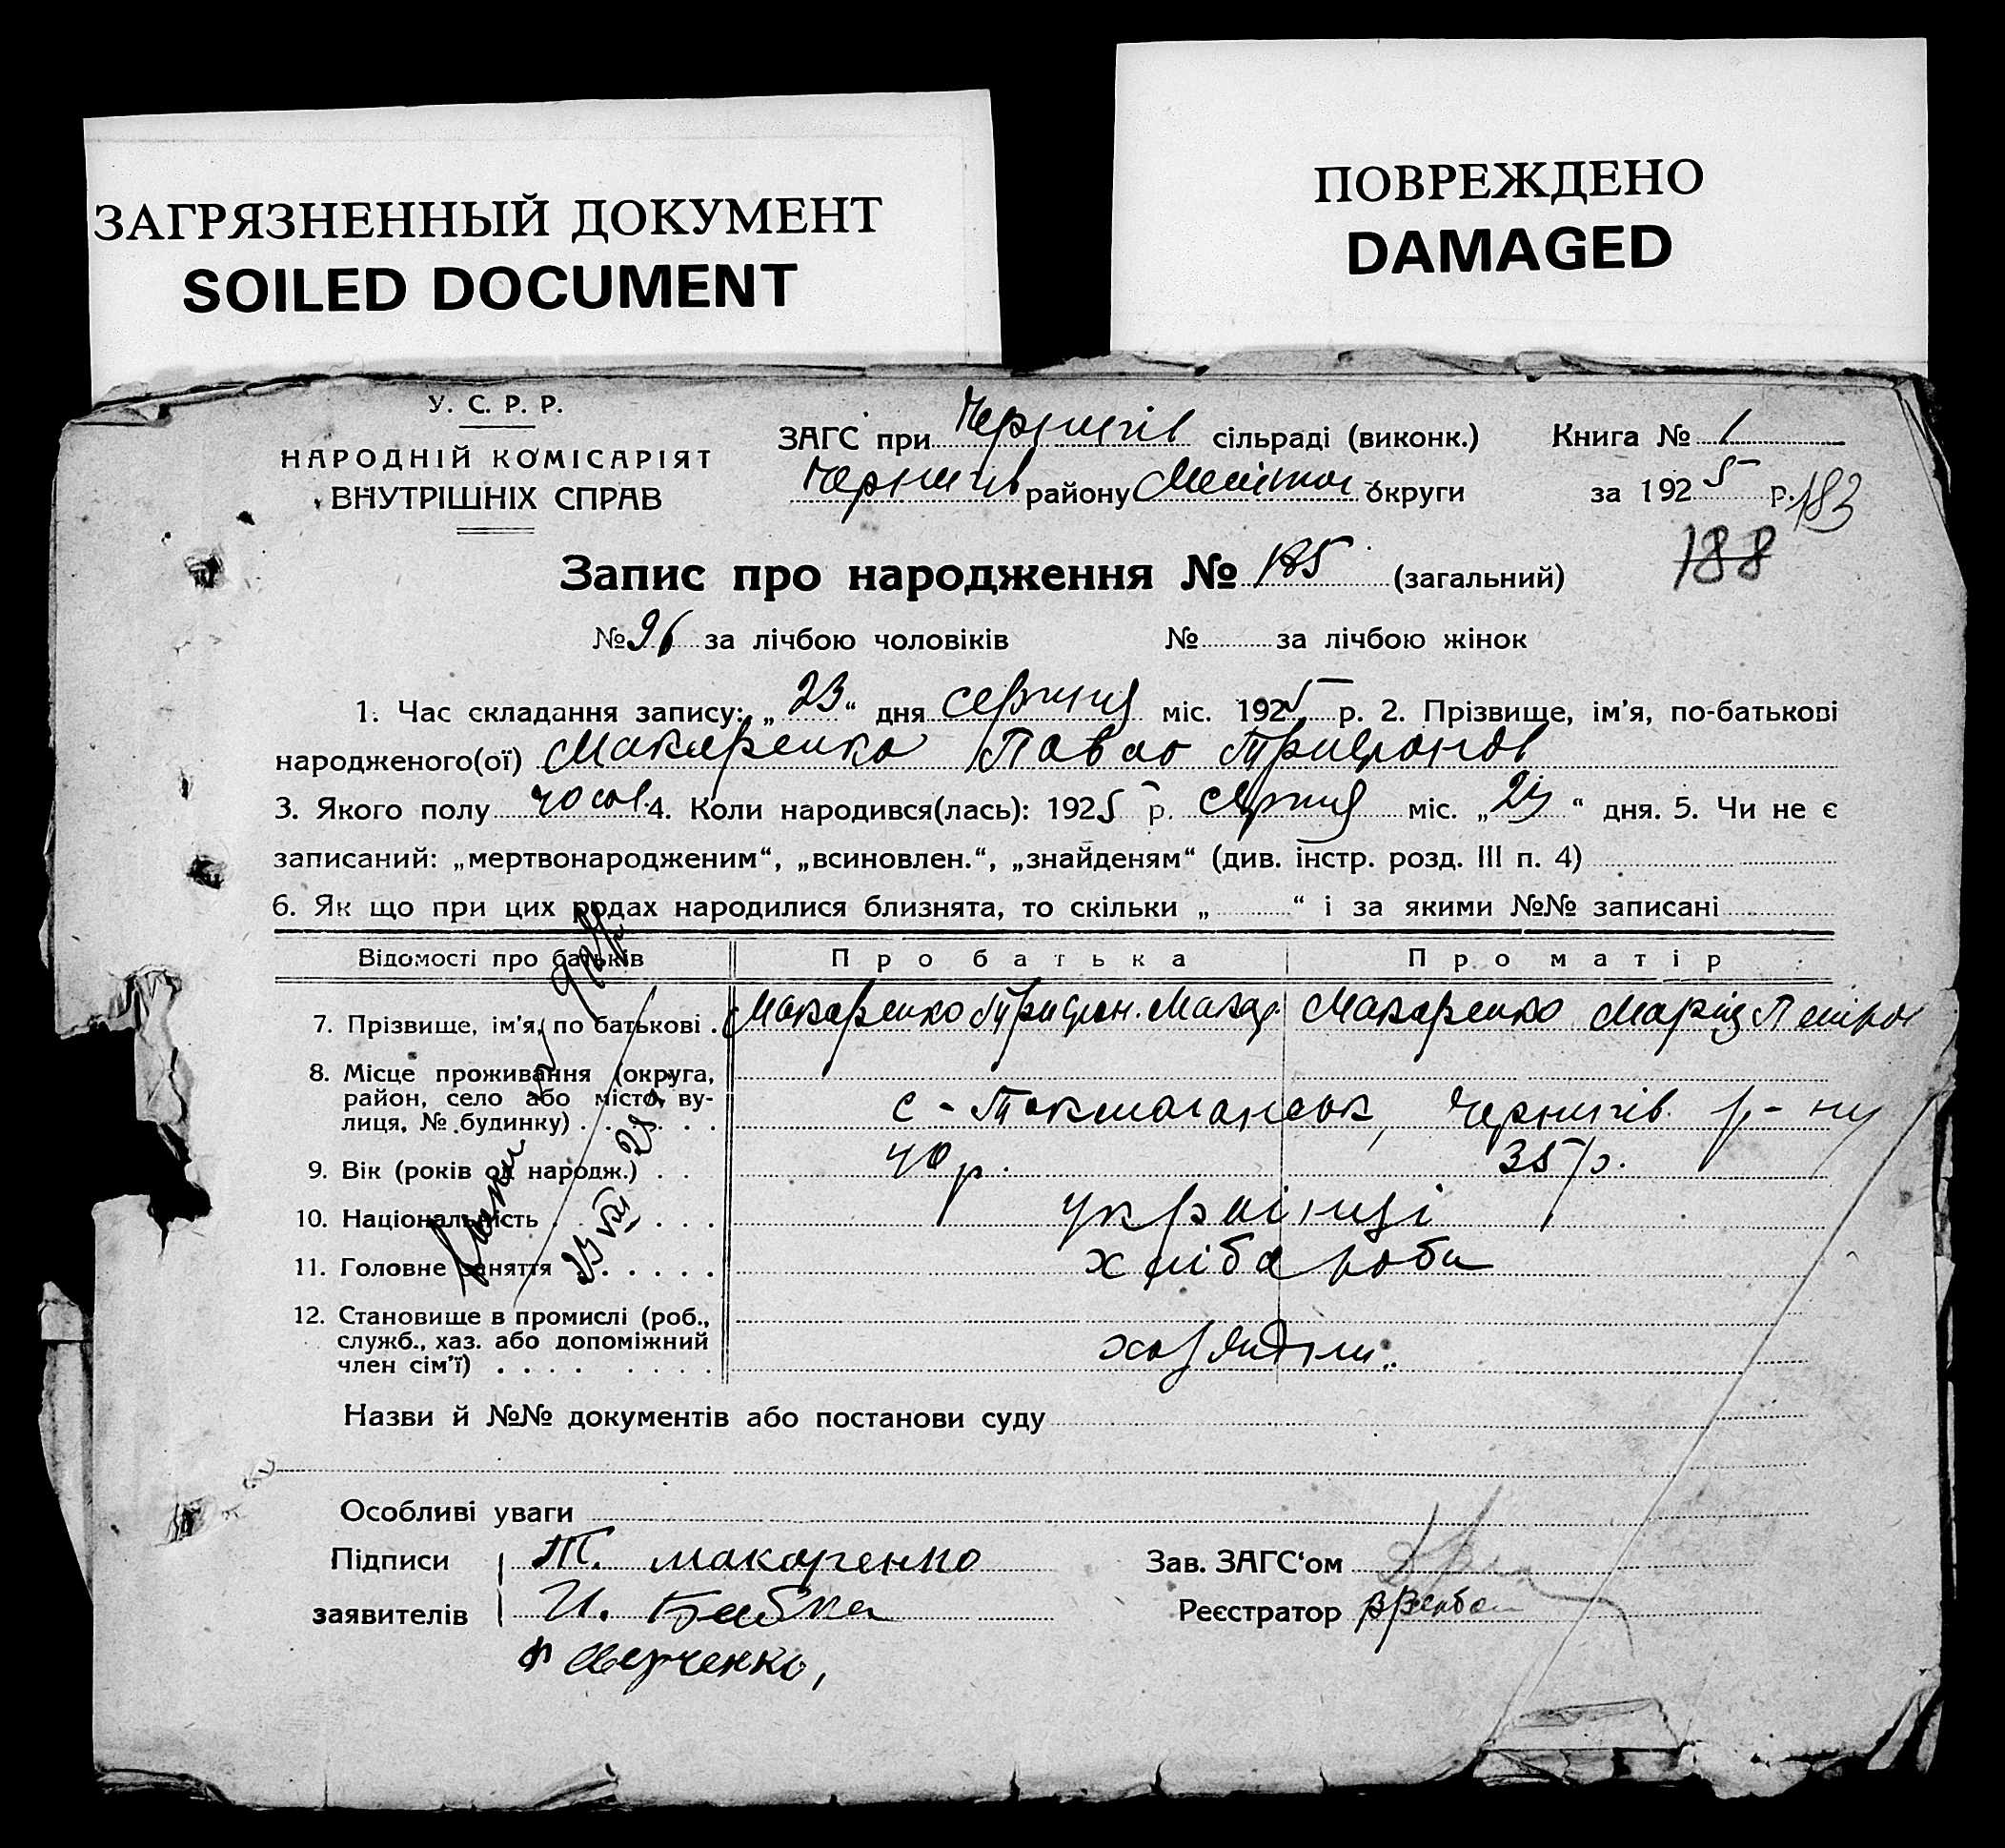 ЗАГРЯЗНЕННЫЙ ДОКУМЕНТ
SOILED DOCUMENT
ПОВРЕЖДЕНО
DAMAGED
У. С. Р. Р.
НАРОДНІЙ КОМІСАРІЯТ
ВНУТРІШНІХ СПРАВ
ЗАГС при Чернигів сільраді (виконк.) Книга № 1
Чернигів району Меліт округи за 1925 р. 183
188
Запис про народження № 185 (загальний)
№ 96 за лічбою чоловіків № за лічбою жінок
1. Час складання запису: „23“ дня серпня міс. 1925 р. 2. Прізвище, ім'я, по-батькові
народженого(ої) Макаренко Павло Трифонов
3. Якого полу чолов. 4. Коли народився(лась): 1925 р. серпня міс. „ “ дня. 5. Чи не є
записаний: „мертвонародженим“, „всиновлен.“, „знайденям“ (див. інстр. розд. III п. 4)
6. Як що при цих родах народилися близнята, то скільки „ “ і за якими №№ записані
Відомості про батьків Про батька Про матір
7. Прізвище, ім'я, по батькові Макаренко Трифон. Макар. Макаренко Марія Петров
8. Місце проживання (округа,
район, село або місто, ву-
лиця, № будинку) с-Токмаганськ, Чернигів. р-ну
9. Вік (років од народж.) 40 р. 35 р.
10. Національність українці
11. Головне заняття хліба роби
12. Становище в промислі (роб.,
служб., хаз. або допоміжний
член сім'ї)
23 VIII 25
Назви й №№ документів або постанови суду
Особливі уваги
Підписи Т. Макаренко Зав. ЗАГС‘ом
заявителів И. Бабка Реєстратор